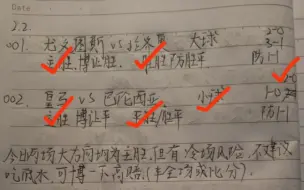 Date
2.2.
001. 尤文图斯 vs 拉素 大球 2-0
主胜,博让胜. 胜防胜平 3-1
防1-1
002. 皇马 vs 巴伦西亚 小球 2-0
主胜 博让平 平胜/胜平 1-0
防1-1
今日两场大方向均为主胜,但有冷场风险,不建议
吃底水,可博一下高赔.(半全场或比分).